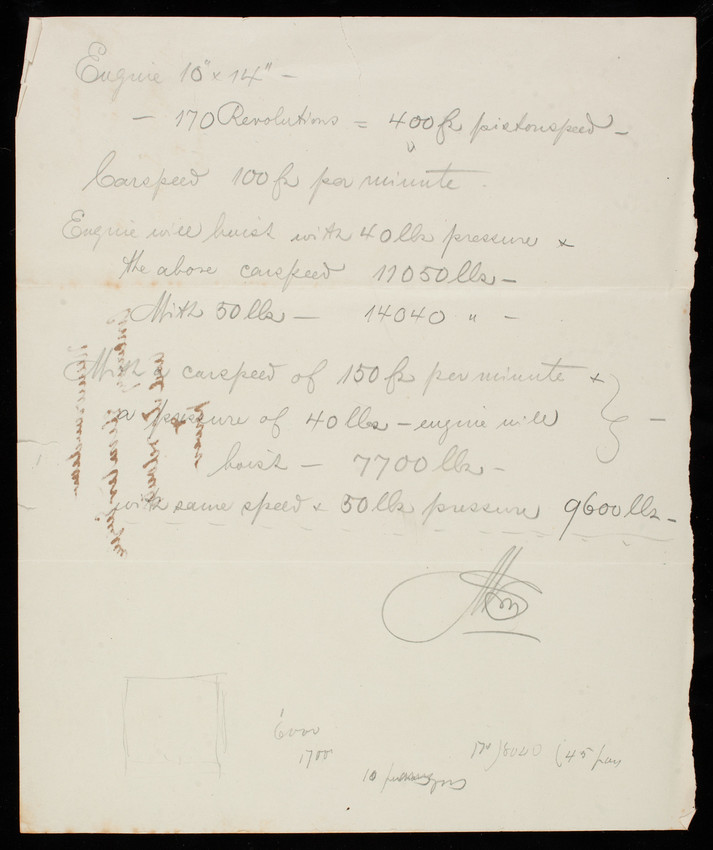 Engine 10" x 14" —
— 170 Revolutions = 400 ft pistonspeed —
Carspeed 100 ft per minute.
Engine will hoist with 40 lbs pressure &
the above carspeed 11050 lbs —
With 50 lbs — 14040 " —
With a carspeed of 150 ft per minute &
a pressure of 40 lbs — engine will
hoist — 7700 lbs —
with same speed & 50 lbs pressure 9600 lbs —
6000
1700
170)8040 (45 pas
10 passengers